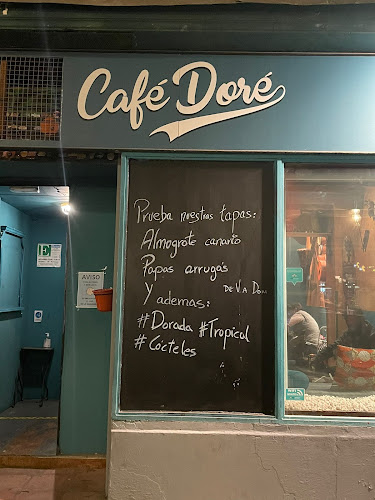 Café Doré
Prueba nuestras tapas:
Almogrote canario
Papas arrugás
Y ademas:
#Dorada #Tropical
#Cócteles
E
AVISO